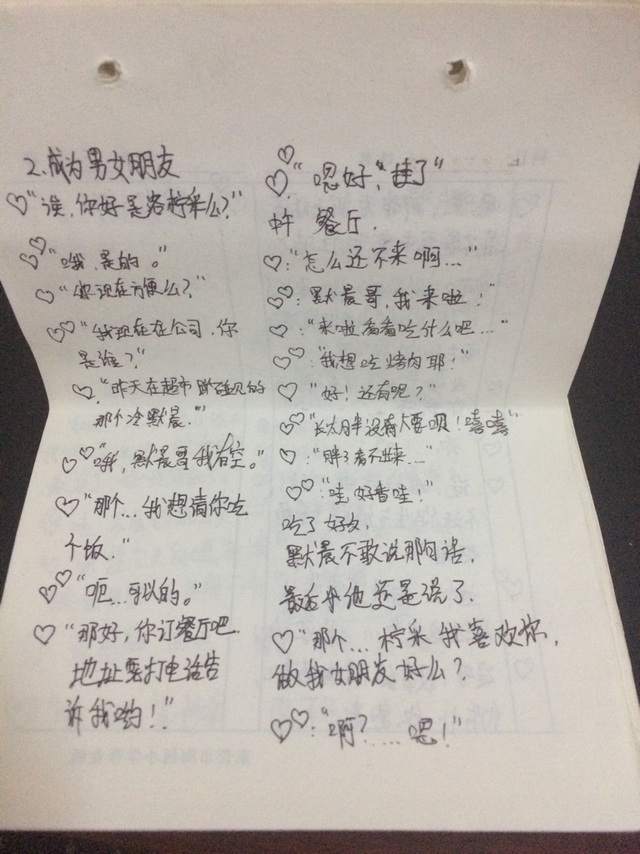 2.成为男女朋友
♡"诶,你好是洛柠采么?"
♡♡"哦,是的。"
♡"你现在方便么?"
♡♡"我现在在公司,你
是谁?"
♡"昨天在超市碰见的
那个冷默晨."
♡♡"哦,默晨哥我有空。"
♡"那个...我想请你吃
个饭."
♡♡"呃...可以的。"
♡"那好,你订餐厅吧
地址要打电话告
诉我哟!"
♡♡"嗯好,""挂了"
餐厅.
♡:"怎么还不来啊..."
♡♡:默晨哥,我来啦!"
♡:"来啦看看吃什么吧..."
♡♡:"我想吃烤肉耶!"
♡"好!还有呢?"
♡♡"长太胖没有人要呗!嘻嘻"
♡:"胖了看不出来..."
♡♡:"哇,好香哇!"
吃了好久,
默晨不敢说那句话,
最后他还是说了.
♡"那个...柠采我喜欢你,
做我女朋友好么?
♡♡:"啊?....嗯!"